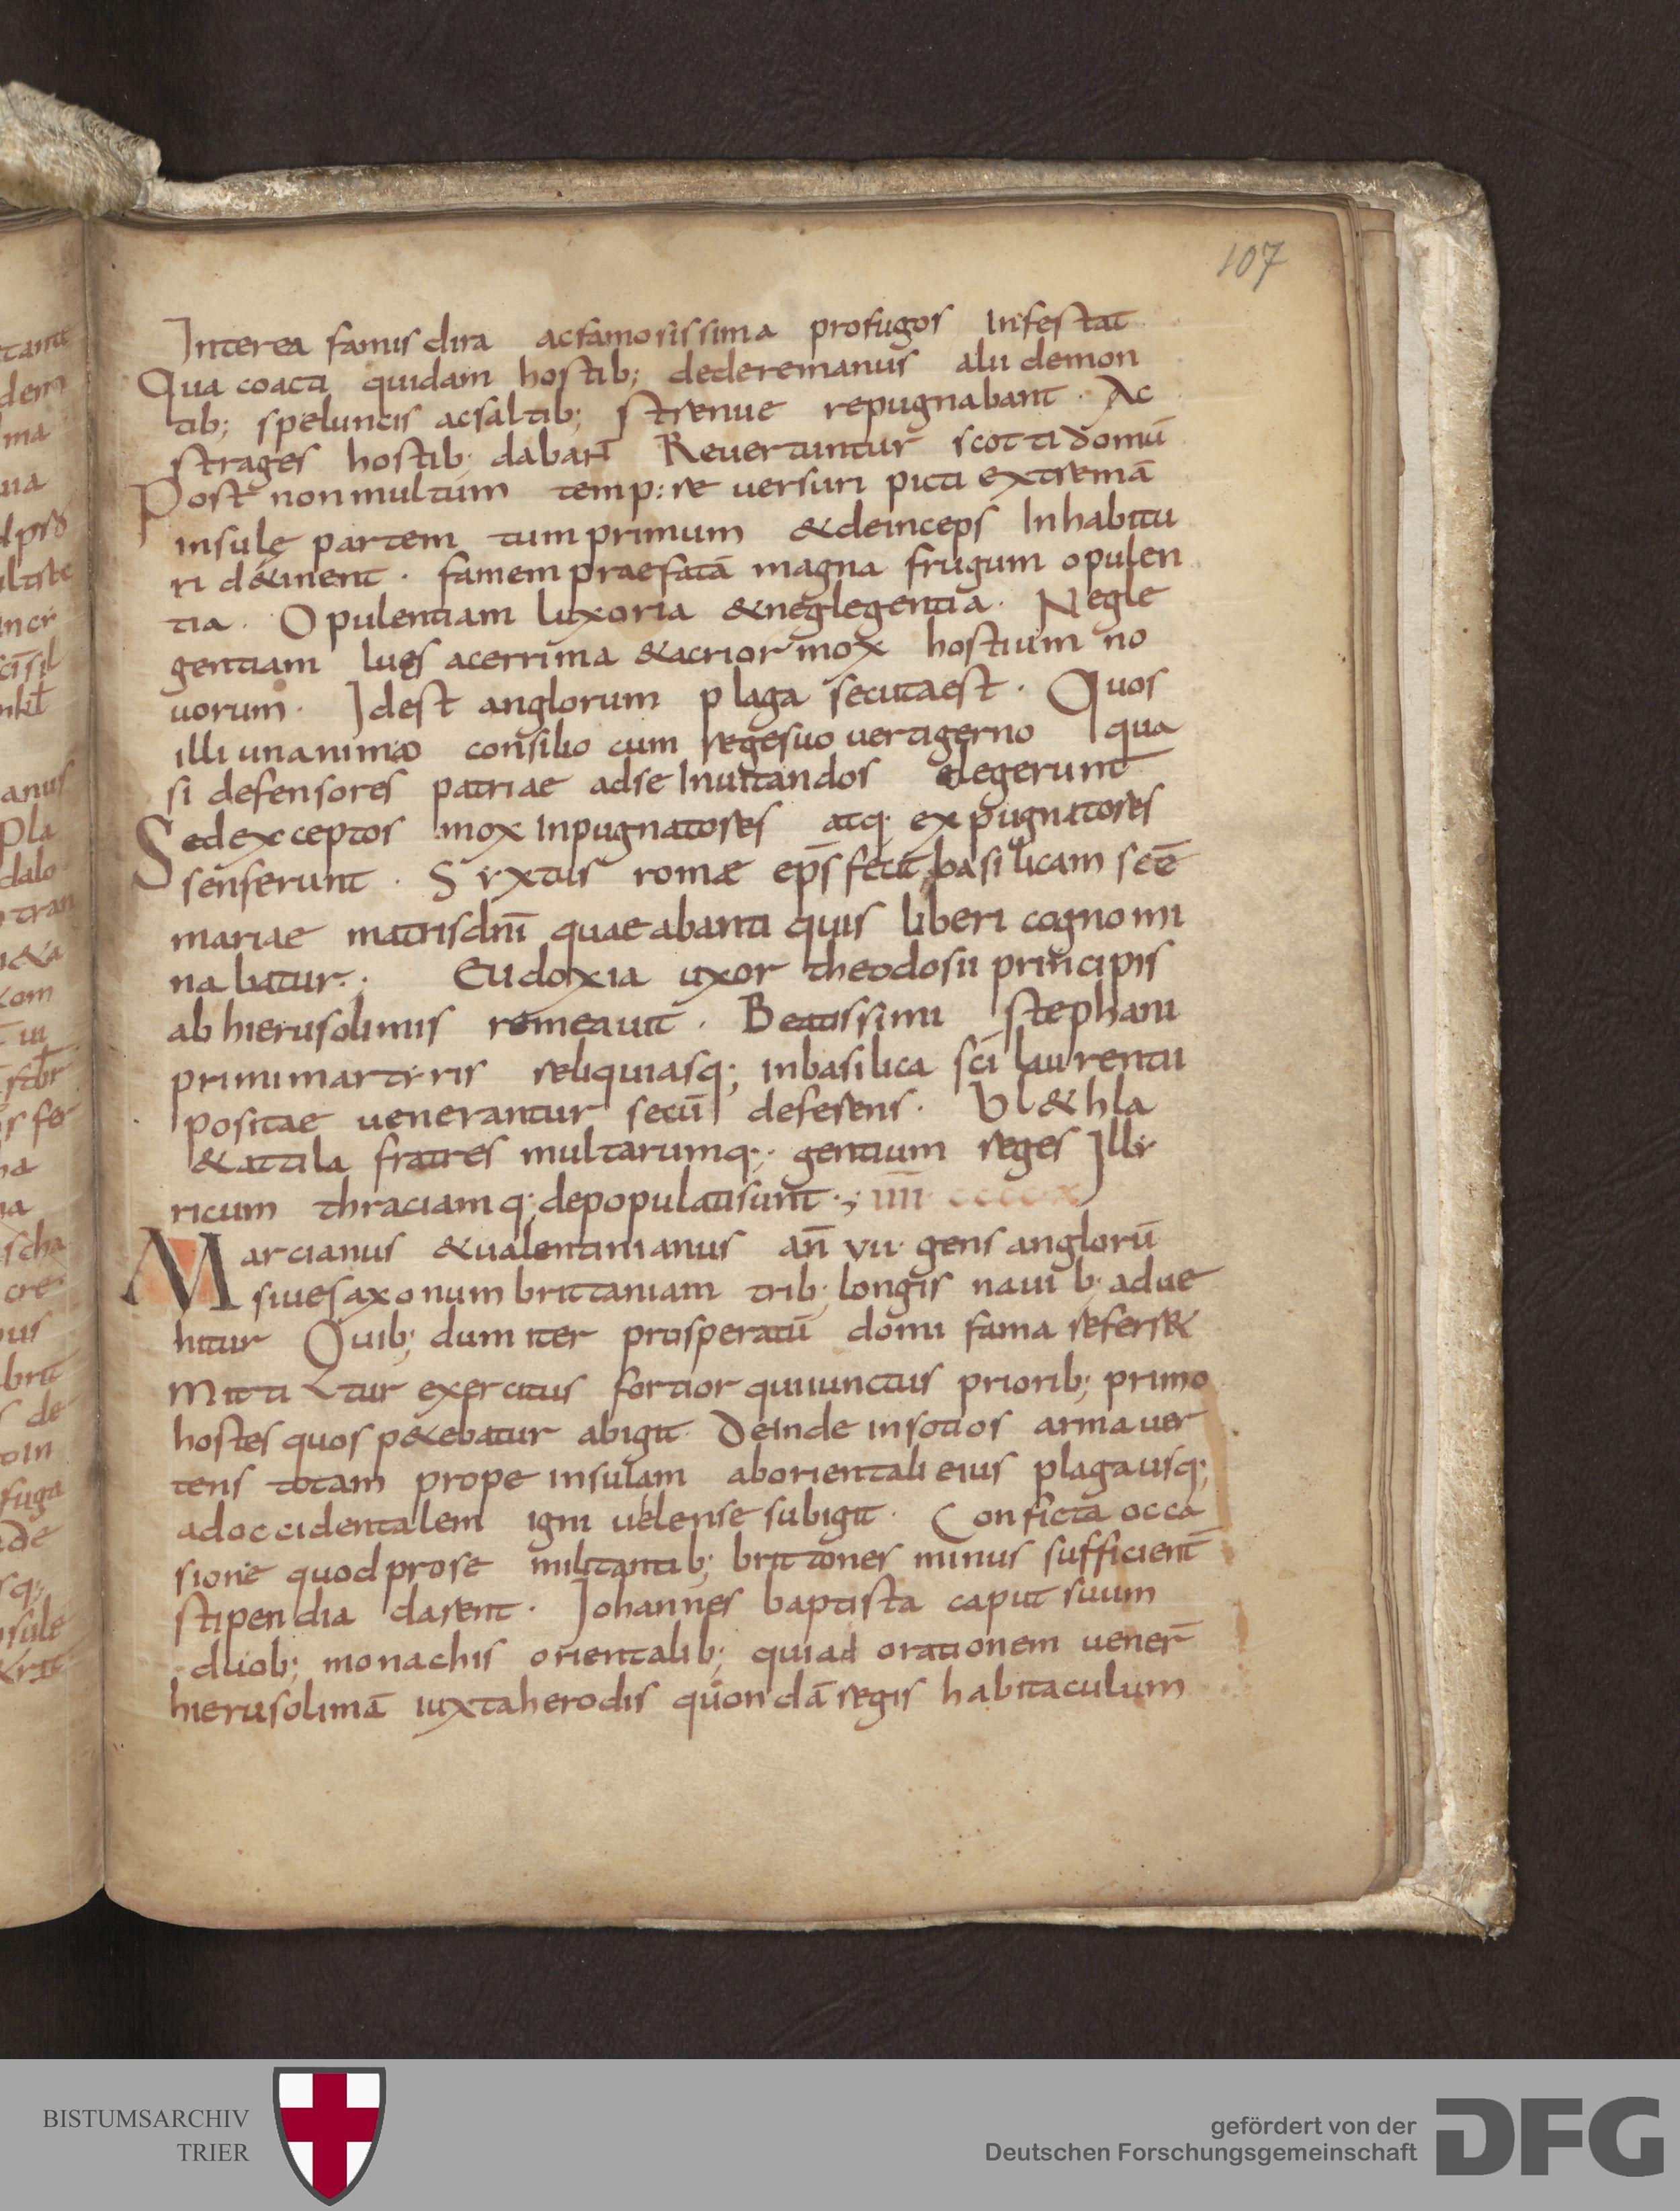 107
Interea famis dira acfamosissima profugos Infestat
Qua coacti quidam hostib; dederemanus alii demon
tib; speluncis acsaltib; strenue repugnabant · Ac
strages hostib; dabant Reuertuntur scotti domū
Post non multum temp:re uersuri picti extremā
insulę partem tum primum &deinceps Inhabitu
ri d&inent · famem praefatā magna frugum opulen
tia · Opulentiam luxoria &neglegentia · Negle
gentiam lues acerrima &acrior mox hostium no
uorum · Idest anglorum plaga secutaest · Quos
illi unanimo consilio cum regesuo uertigerno qua
si defensores patriae adse Inuitandos elegerunt
Sed exceptos mox Inpugnatores atq; expugnatores
senserunt · Syxtus romæ ep̄s fecit basilicam scē
mariae matrisdn̄i quae abanti quis liberi cognomi
nabatur ·; Eudoxia uxor theodosii principis
ab hierusolimis remeauit · Beatissimi stephani
primimartyris reliquiasq; inbasilica sc̄i laurentii
positae uenerantur secū deferens · Vl&hla
&attila fratres multarumq; gentium reges Illy
ricum thraciamq; depopulatisunt ·; IIII ccccx
Marcianus &ualentinianus an̄ vii · gens anglorū
siuesaxonum brittaniam trib; longis nauib; adue
hitur Quib; dum iter prosperatū domi fama referr&
Mittitur exercitus fortior quiiunctus priorib; primo
hostes quos p&ebatur abigit · Deinde insotios arma uer
tens totam prope insulam aborientali eius plagausq;
adoccidentalem igni uelense subigit · Conficta occa
sione quod prose militantib; brittones minus sufficient̄
stipendia darent · Iohannes baptista caput suum
duob; monachis orientalib; quiad orationem uener̄
hierusolimā iuxtaherodis quondā regis habitaculum
BISTUMSARCHIV
TRIER
gefördert von der
Deutschen Forschungsgemeinschaft
DFG